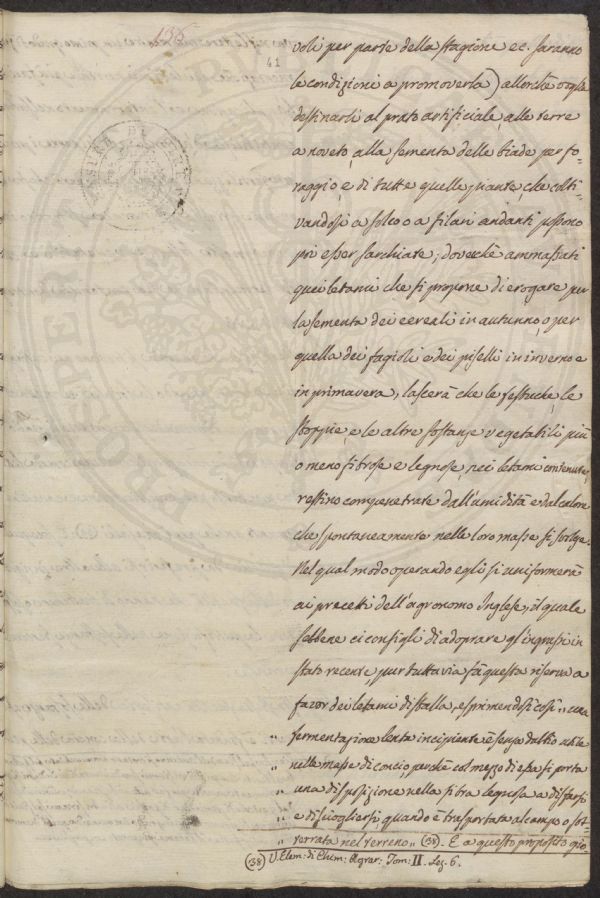 136
41
voli per parte della stagione ec. saranno
le condizioni a promoverla) allorchè voglia
destinarli al prato artificiale, alle terre
a noveto, alla sementa delle biade per fo-
raggio, e di tutte quelle piante, che colti-
vandosi a solco o a filari andanti possono
poi esser sarchiate; dovechè ammassati
quei letami che si propone di erogare per
la sementa dei cereali in autunno, o per
quella dei fagioli e dei piselli in inverno e
in primavera, lascerà che le festuche, le
stoppie, e le altre sostanze vegetabili più
o meno fibrose e legnose, nei letami contenute,
restino compenetrate dall'umidità e dal calore
che spontaneamente nelle loro masse si svolge.
Nel qual modo operando egli si uniformerà
ai precetti dell'agronomo Inglese, il quale
sebbene ci consigli di adoprare gl'ingrassi in
stato recente, pur tuttavia fa questa riserva a
favor dei letami di stalla, esprimendosi così „ una
„ fermentazione lenta incipiente è senza dubbio utile
„ nelle masse di concio, perchè col mezzo di essa si porta
„ una disposizione nella fibra legnosa a disfarsi
„ e disciogliersi, quando è trasportata al campo o sot-
„ terrata nel terreno „ (38). E a questo proposito gio-
(38) V. Elem: di Chim: Agrar: Tom: II. Lez. 6.